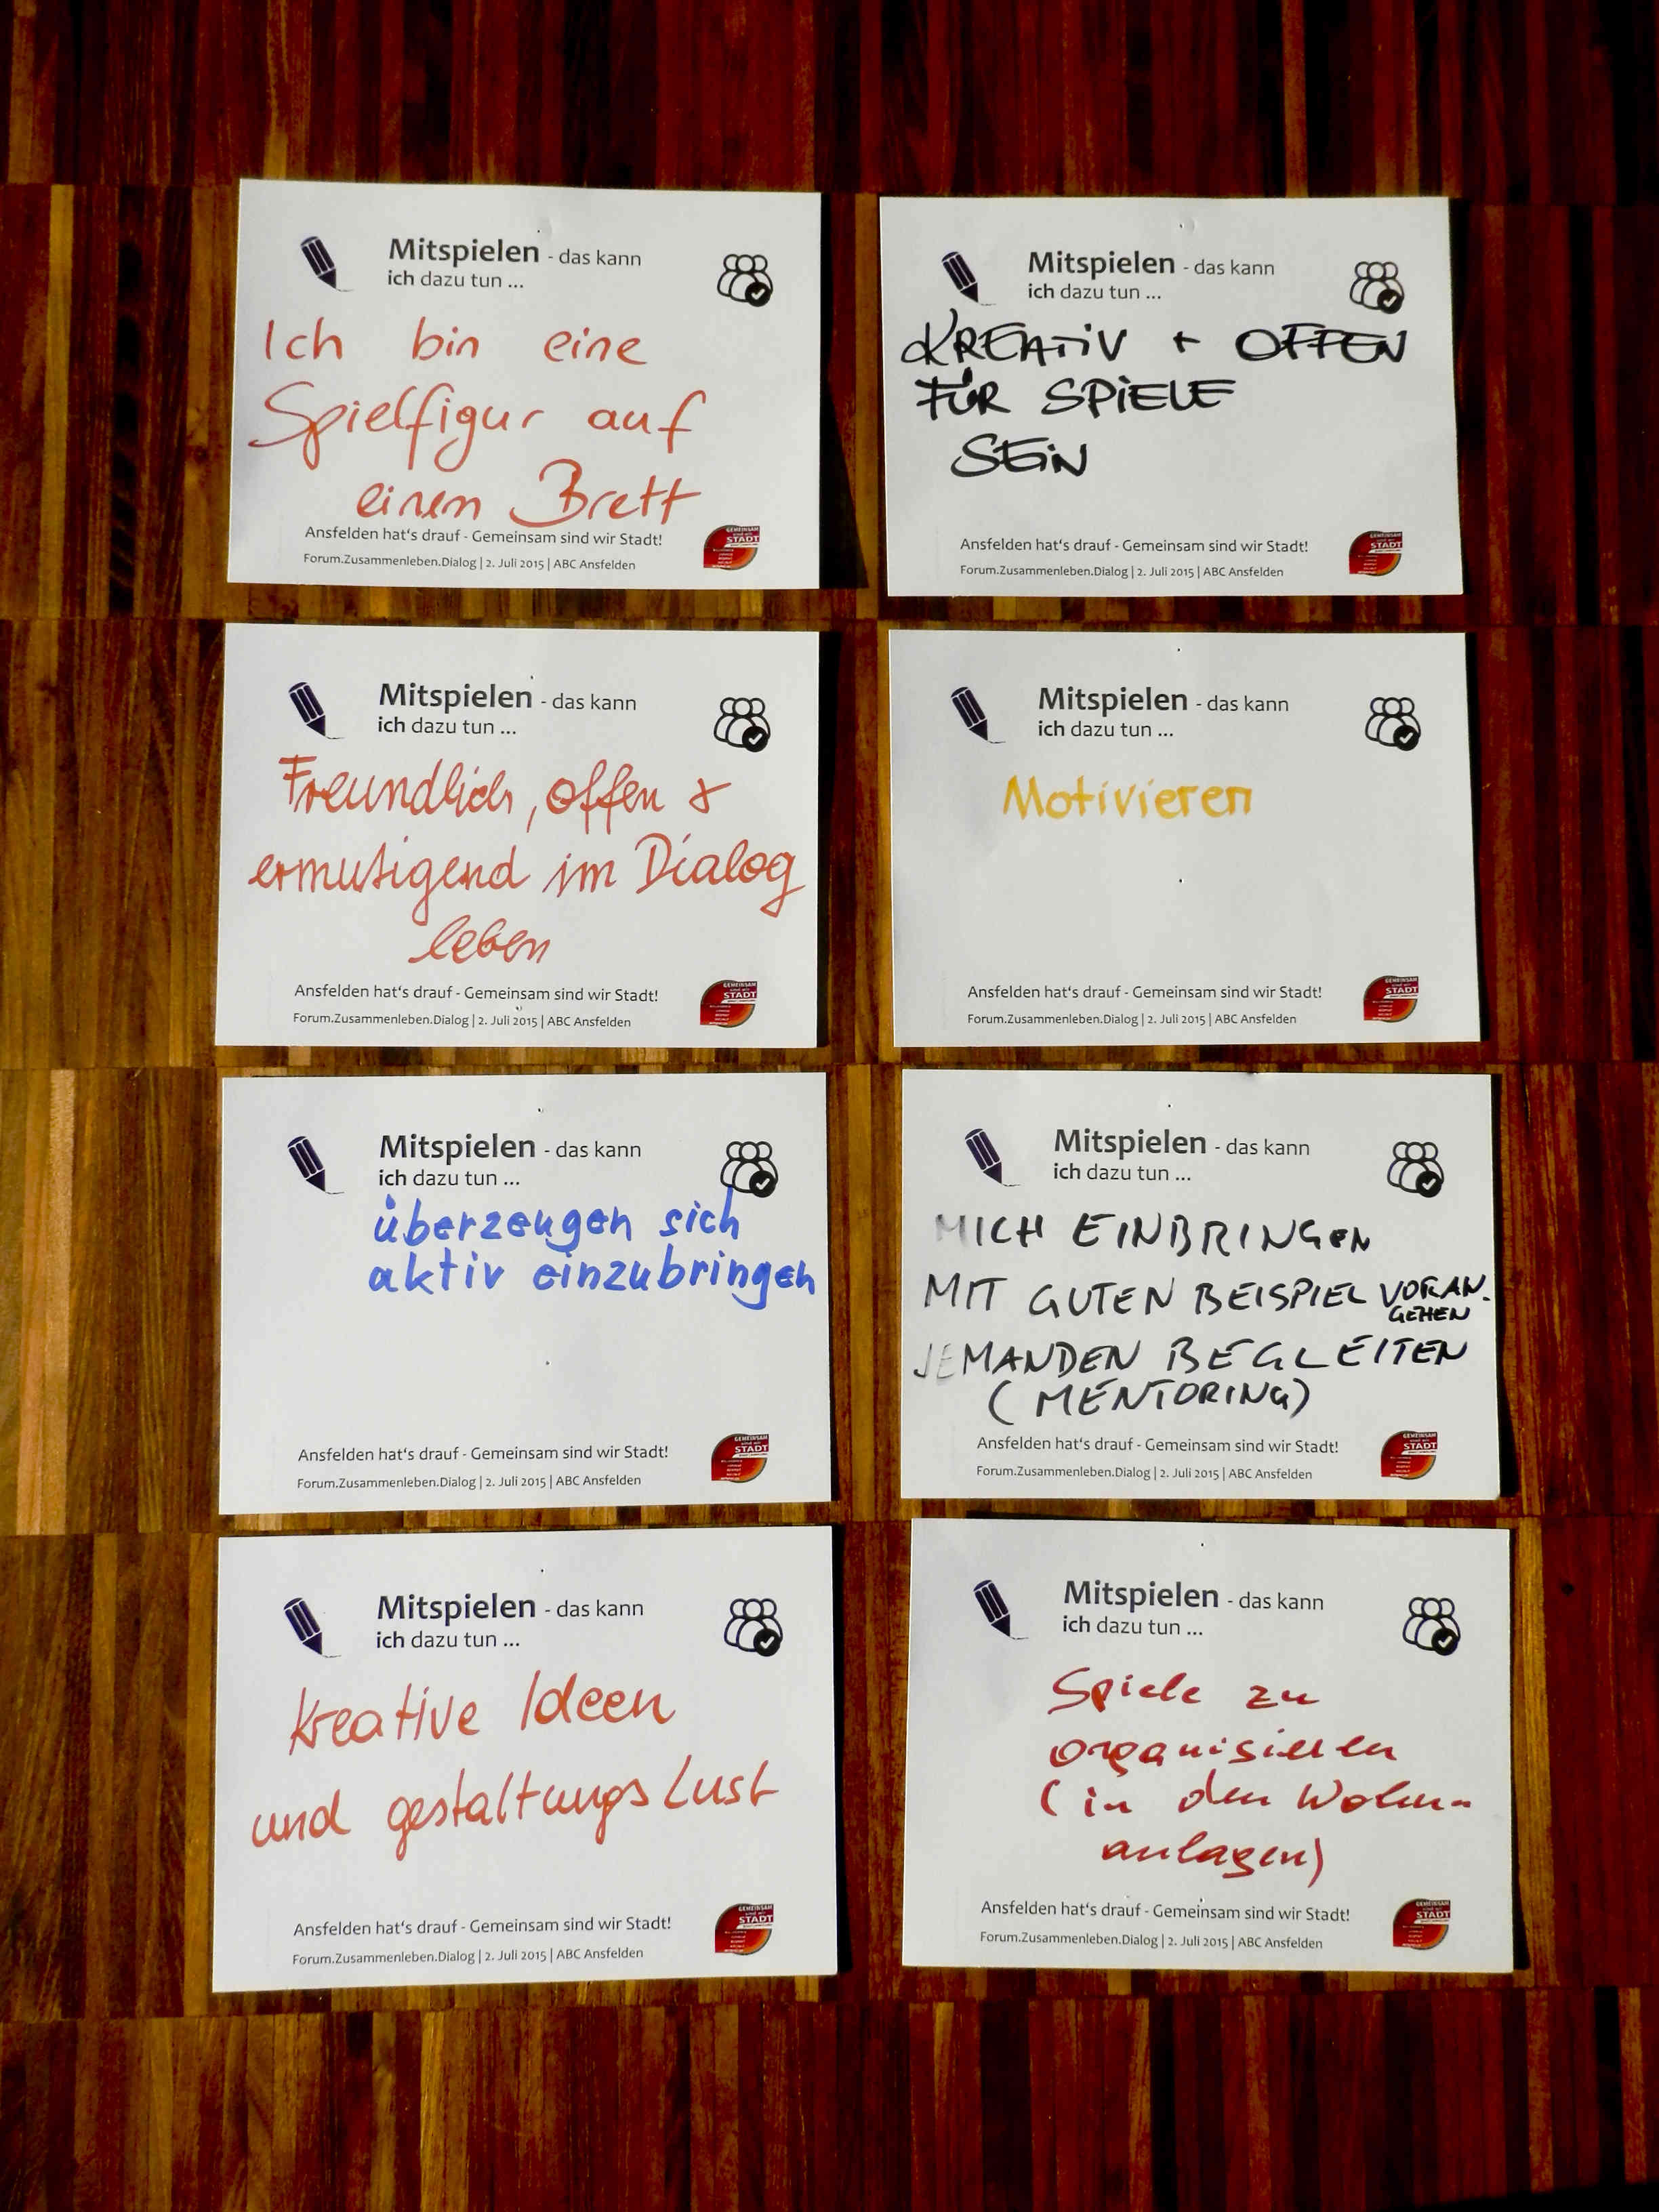 Mitspielen - das kann
ich dazu tun ...
Ich bin eine
Spielfigur auf
einem Brett
Ansfelden hat's drauf - Gemeinsam sind wir Stadt!
Forum.Zusammenleben.Dialog | 2. Juli 2015 | ABC Ansfelden
GEMEINSAM
sind wir
STADT
Mitspielen - das kann
ich dazu tun ...
KREATiV + OFFEN
FÜR SPiELE
SEiN
Ansfelden hat's drauf - Gemeinsam sind wir Stadt!
Forum.Zusammenleben.Dialog | 2. Juli 2015 | ABC Ansfelden
GEMEINSAM
sind wir
STADT
Mitspielen - das kann
ich dazu tun ...
Freundlich, offen &
ermutigend im Dialog
leben
Ansfelden hat's drauf - Gemeinsam sind wir Stadt!
Forum.Zusammenleben.Dialog | 2. Juli 2015 | ABC Ansfelden
GEMEINSAM
sind wir
STADT
Mitspielen - das kann
ich dazu tun ...
Motivieren
Ansfelden hat's drauf - Gemeinsam sind wir Stadt!
Forum.Zusammenleben.Dialog | 2. Juli 2015 | ABC Ansfelden
GEMEINSAM
sind wir
STADT
Mitspielen - das kann
ich dazu tun ...
überzeugen sich
aktiv einzubringen
Ansfelden hat's drauf - Gemeinsam sind wir Stadt!
Forum.Zusammenleben.Dialog | 2. Juli 2015 | ABC Ansfelden
GEMEINSAM
sind wir
STADT
Mitspielen - das kann
ich dazu tun ...
MICH EINBRINGEN
MIT GUTEN BEISPIEL VORAN-
GEHEN
JEMANDEN BEGLEITEN
(MENTORING)
Ansfelden hat's drauf - Gemeinsam sind wir Stadt!
Forum.Zusammenleben.Dialog | 2. Juli 2015 | ABC Ansfelden
GEMEINSAM
sind wir
STADT
Mitspielen - das kann
ich dazu tun ...
kreative Ideen
und gestaltungs Lust
Ansfelden hat's drauf - Gemeinsam sind wir Stadt!
Forum.Zusammenleben.Dialog | 2. Juli 2015 | ABC Ansfelden
GEMEINSAM
sind wir
STADT
Mitspielen - das kann
ich dazu tun ...
Spiele zu
organisieren
(in den Wohn-
anlagen)
Ansfelden hat's drauf - Gemeinsam sind wir Stadt!
Forum.Zusammenleben.Dialog | 2. Juli 2015 | ABC Ansfelden
GEMEINSAM
sind wir
STADT